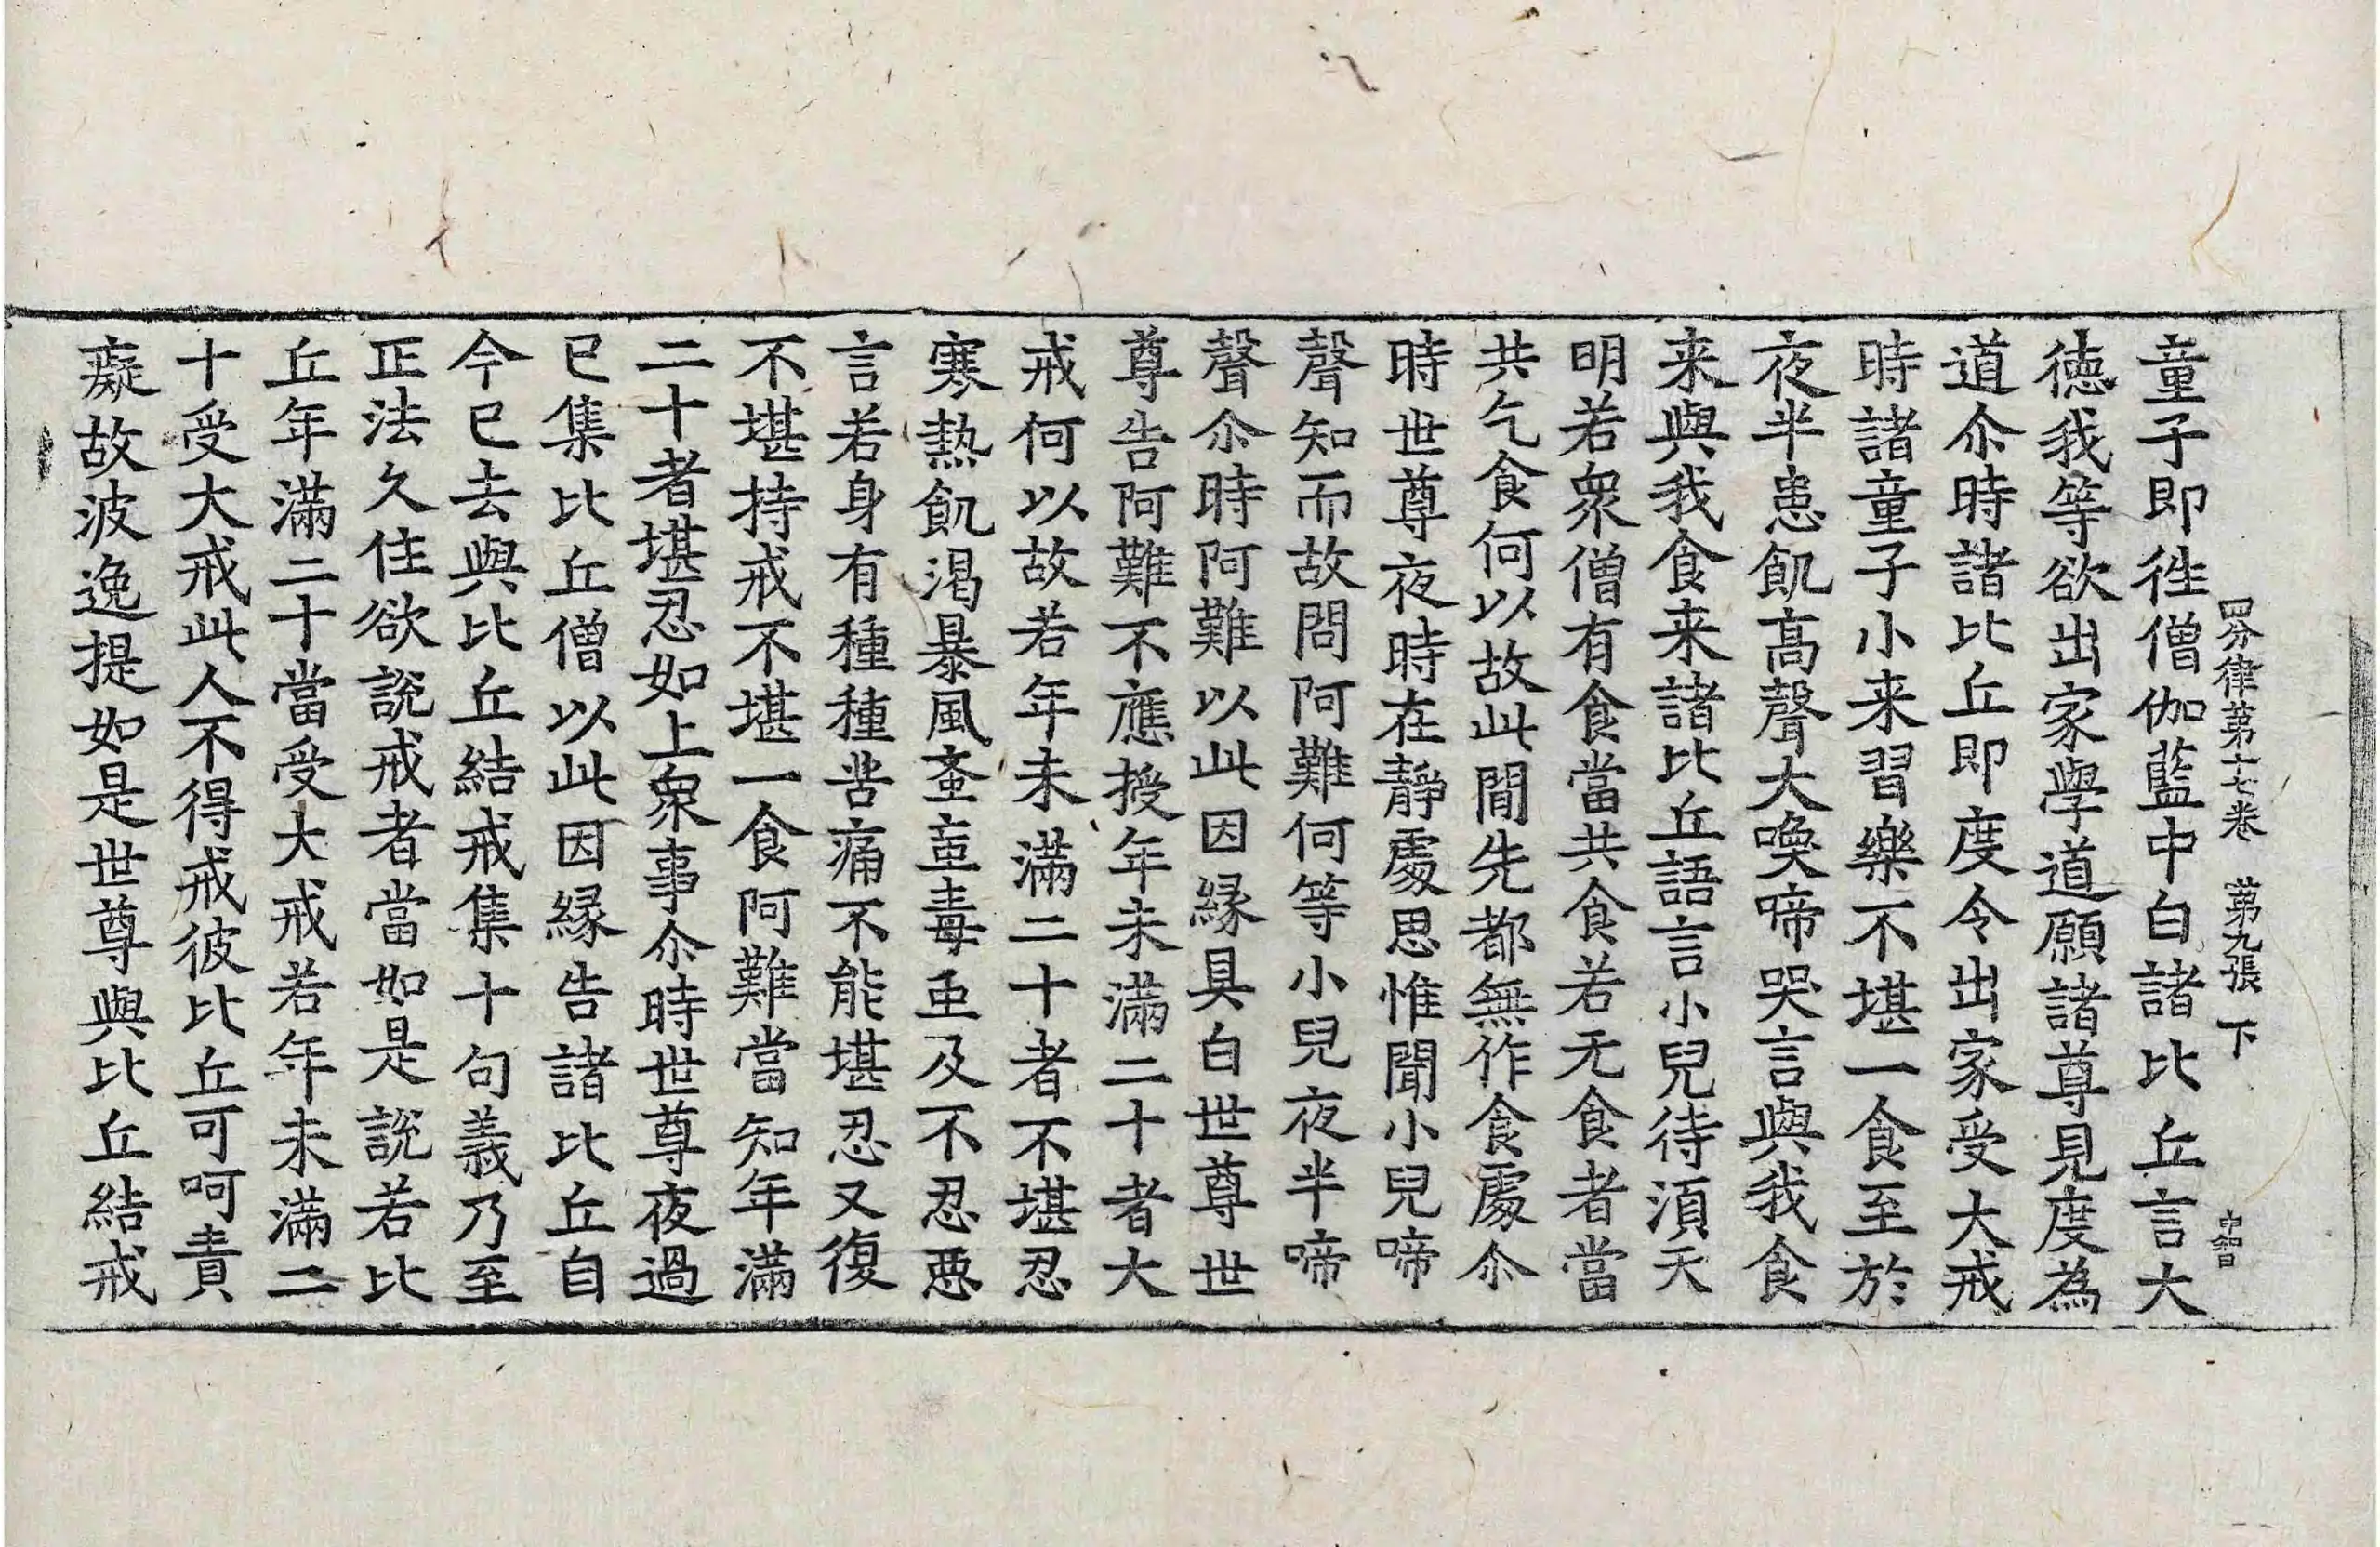 四分律第十七卷 第九張 下 中智
童子即徃僧伽藍中白諸比丘言大
徳我等欲出家學道願諸尊見度為
道尒時諸比丘即度令出家受大戒
時諸童子小来習樂不堪一食至於
夜半患飢髙聲大喚啼哭言與我食
来與我食来諸比丘語言小兒待湏天
明若衆僧有食當共食若无食者當
共乞食何以故此間先都無作食處尒
時世尊夜時在静處思惟聞小兒啼
聲知而故問阿難何等小兒夜半啼
聲尒時阿難以此因縁具白世尊世
尊告阿難不應授年未滿二十者大
戒何以故若年未滿二十者不堪忍
寒熱飢渴暴風蚉䖟毒虽及不忍惡
言若身有種種苦痛不能堪忍又復
不堪持戒不堪一食阿難當知年滿
二十者堪忍如上衆事尒時世尊夜過
已集比丘僧以此因縁告諸比丘自
今已去與比丘結戒集十句義乃至
正法久住欲説戒者當如是説若比
丘年滿二十當受大戒若年未滿二
十受大戒此人不得戒彼比丘可呵責
癡故波逸提如是世尊與比丘結戒